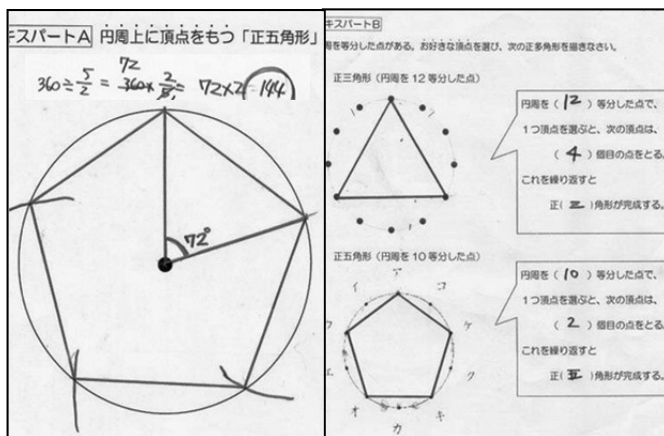 キスパートA 円周上に頂点をもつ「正五角形」
360÷5/2 = 360×2/5 = 72×2 144
72
72°
キスパートB
周を等分した点がある。お好きな頂点を選び、次の正多角形を描きなさい。
正三角形(円周を12等分した点)
円周を(12)等分した点で、
1つ頂点を選ぶと、次の頂点は、
(4)個目の点をとる。
これを繰り返すと
正(三)角形が完成する。
正五角形(円周を10等分した点)
ア
イ
コ
ウ
ケ
エ
ク
オ
キ
カ
円周を(10)等分した点で、
1つ頂点を選ぶと、次の頂点は、
(2)個目の点をとる。
これを繰り返すと
正(五)角形が完成する。